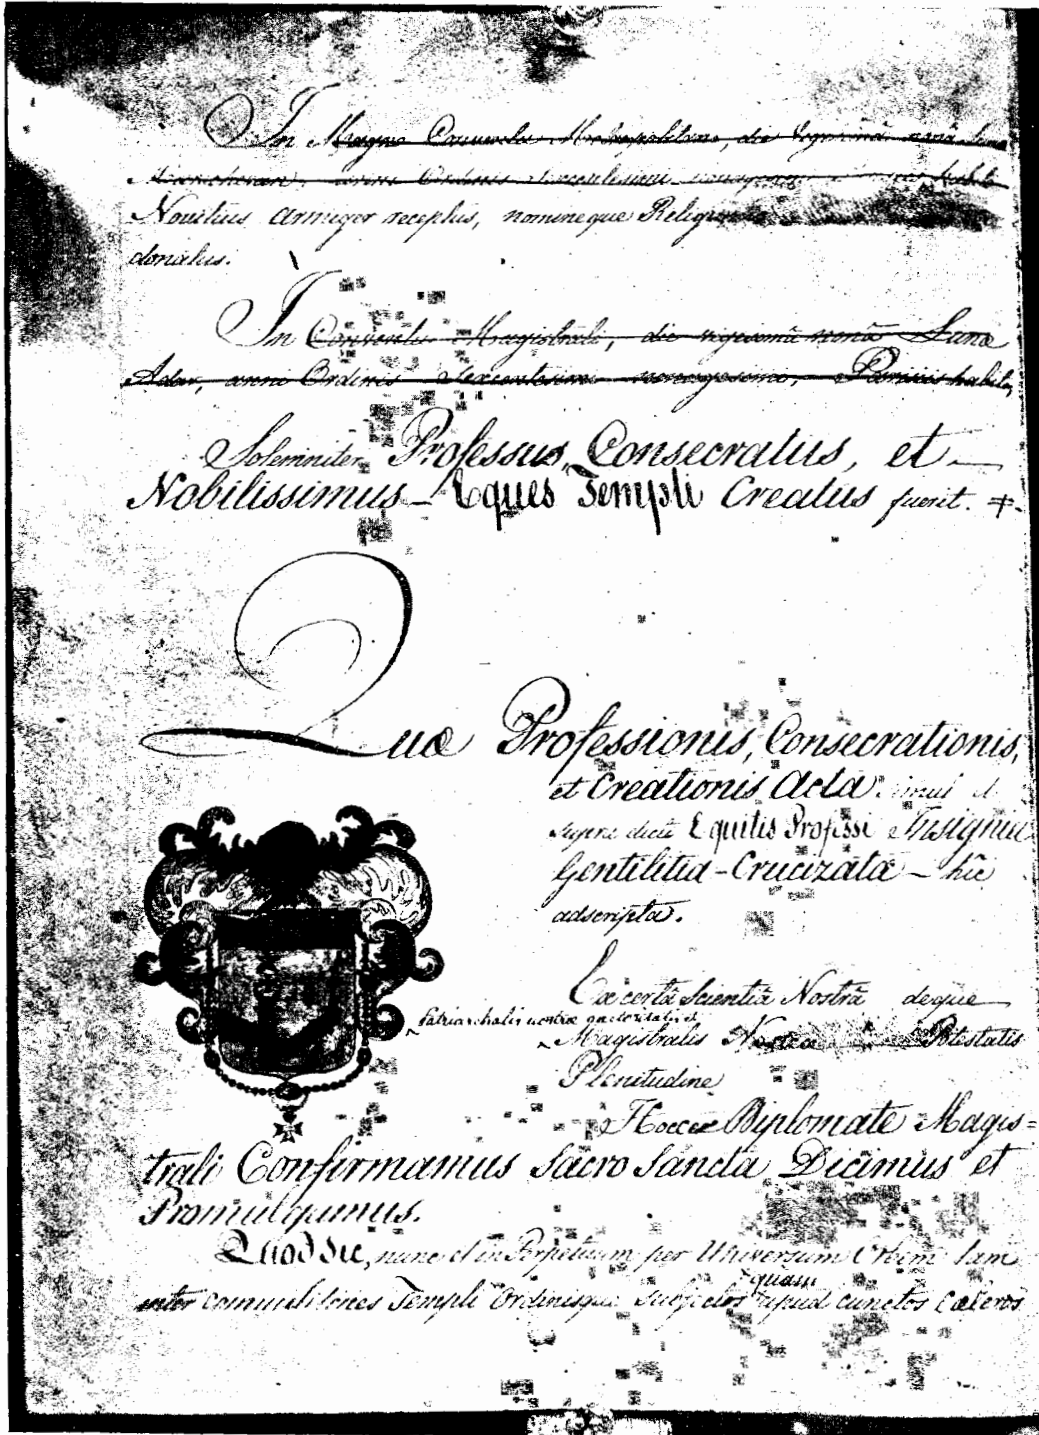 In Magno Conventu Metropolitano, die vigesimâ nonâ Lunæ
anni Ordinis
Novitius Armiger receptus, nomineque Religi
donatus.
In Conventu Magistrali, die vigesimâ nonâ Lunæ
Adar, anni Ordinis sexcentesimi nonagesimi, Parisiis habito,
Solemniter Professus, Consecratus, et
Nobilissimus Eques Templi Creatus fuerit.
Quæ Professionis, Consecrationis,
et Creationis Acta simul et
supra dicti Equitis Professi Insignia
Gentilitia-Crucizata hîc
adscripta.
Ex certâ Scientiâ Nostrâ deque
Patriarchalis nostræ auctoritatis et
Magistralis Nostræ Potestatis
Plenitudine
Hocce Diplomate Magis=
trali Confirmamus Sacro Sancta Dicimus et
Promulgamus.
Quod sic, nunc et in Perpetuum per Universum Orbem tam
quam
inter commilitones Templi Ordinisque Subjectos apud cunctos Cæteros